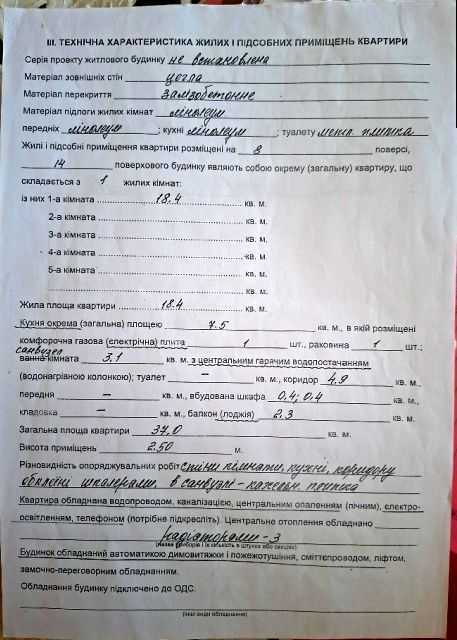 III. ТЕХНІЧНА ХАРАКТЕРИСТИКА ЖИЛИХ І ПІДСОБНИХ ПРИМІЩЕНЬ КВАРТИРИ
Серія проекту житлового будинку не встановлена
Матеріал зовнішніх стін цегла
Матеріал перекриття залізобетонне
Матеріал підлоги жилих кімнат лінолеум
передніх лінолеум ; кухні лінолеум ; туалету плитка
Жилі і підсобні приміщення квартири розміщені на 8 поверсі,
14 поверхового будинку являють собою окрему (загальну) квартиру, що
складається з 1 жилих кімнат:
із них 1-а кімната 18.4 кв. м.
2-а кімната кв. м.
3-а кімната кв. м.
4-а кімната кв. м.
5-а кімната кв. м.
кв. м.
Жила площа квартири 18.4 кв. м.
Кухня окрема (загальна) площею 7.5 кв. м., в якій розміщені
комфорочна газова (електрична) плита 1 шт., раковина 1 шт.;
санвузел
ванна кімната 3.1 кв. м. з центральним гарячим водопостачанням
(водонагрівною колонкою); туалет – кв. м., коридор 4.9 кв. м.,
передня – кв. м., вбудована шкафа 0,4; 0,4 кв. м.,
кладовка – кв. м., балкон (лоджія) 2.3 кв. м.
Загальна площа квартири 37.0 кв. м.
Висота приміщень 2.50 м.
Різновидність опоряджувальних робіт стіни кімнати, кухні, коридору
обклеєні шпалерами, в санвузлі - кахельн. плитка
Квартира обладнана водопроводом, каналізацією, центральним опаленням (пічним), електро-
освітленням, телефоном (потрібне підкреслить). Центральне отоплення обладнано
радіаторами - 3
Будинок обладнаний автоматикою димовитяжки і пожежотушіння, сміттєпроводом, ліфтом,
замочно-переговорним обладнанням.
Обладнання будинку підключено до ОДС:
(інші види обладнання)